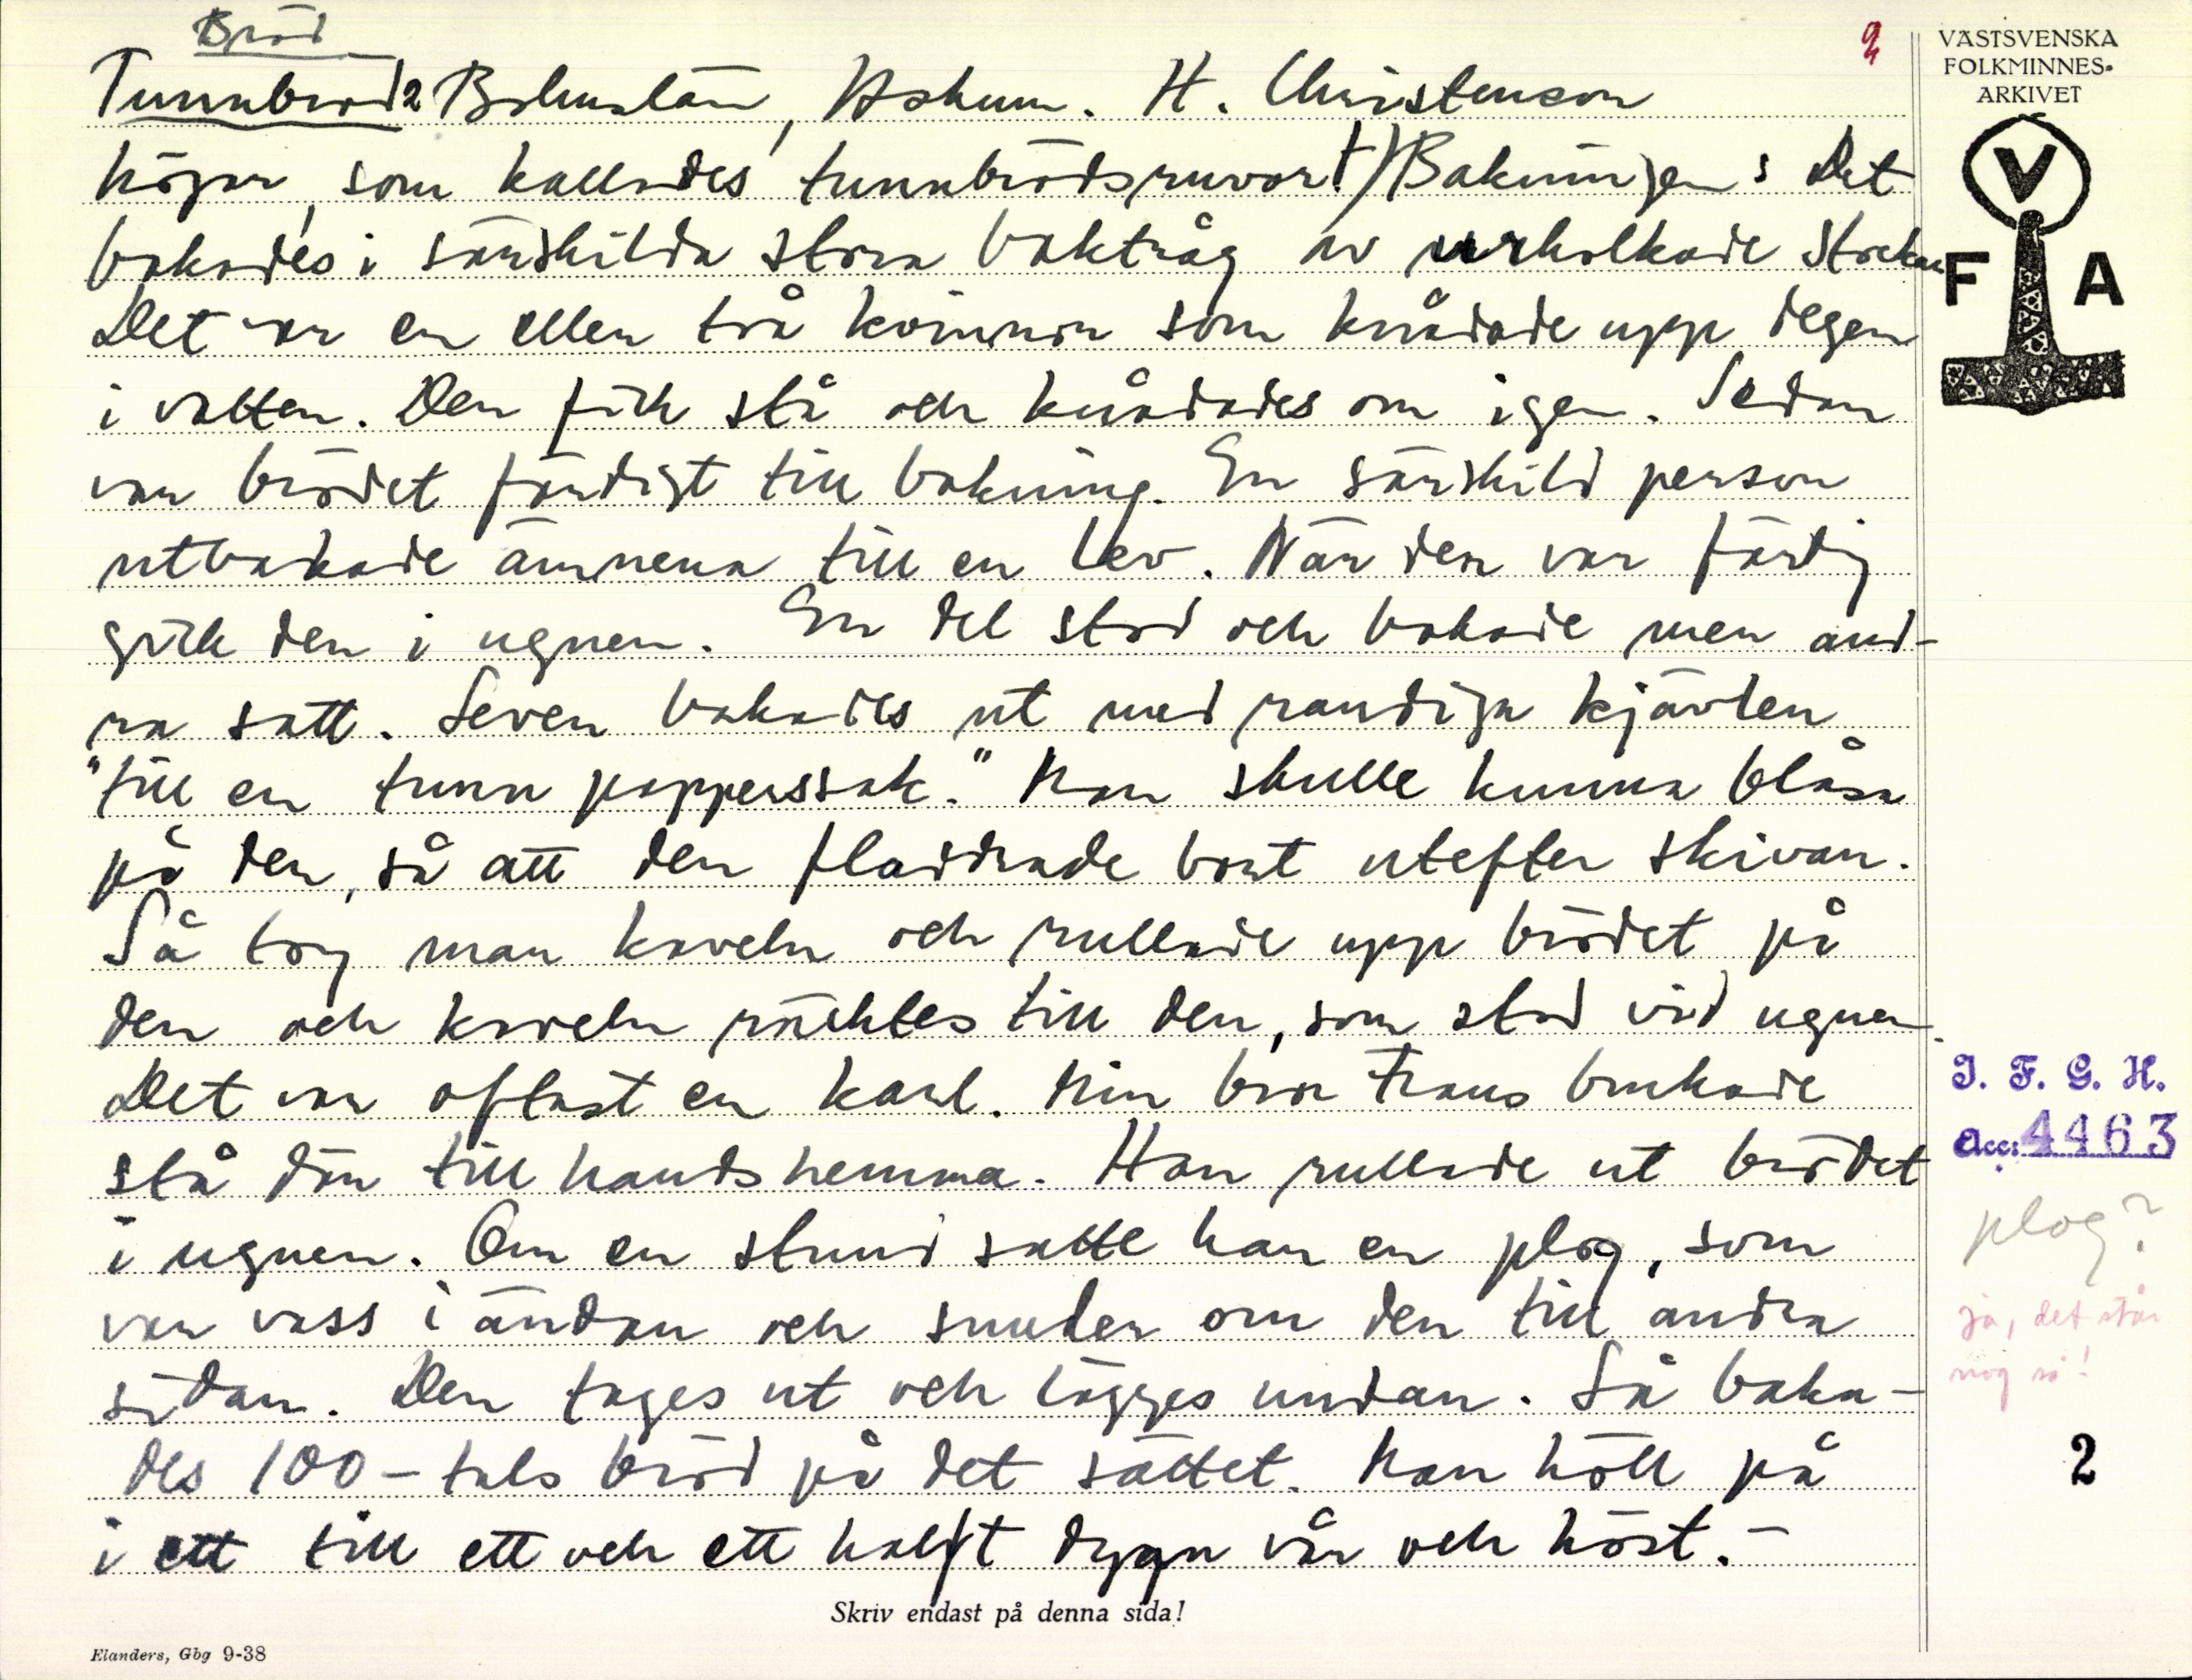 Bröd
Tunnbröd 2 Bohuslän, Askum. H. Christenson
högar, som kallades tunnbrödsruvor!) Bakningen: Det
bakades i särskilda stora baktråg av urholkade stockar
Det var en eller två kvinnor som knådade upp degen
i vatten. Den fick stå och knådades om igen. Sedan
var brödet färdigt till bakning. En särskild person
utbakade ämnena till en lev. När den var färdig
gick den i ugnen. En del stod och bakade men and-
ra satt. Leven bakades ut med randiga kjävlen
"till en tunn papperssak." Man skulle kunna blåsa
på den, så att den fladdrade bort utefter skivan.
Så tog man kaveln och rullade upp brödet på
den och kaveln räcktes till den, som stod vid ugnen.
Det var oftast en karl. Min bror Frans brukade
stå där till hands hemma. Han rullade ut brödet
i ugnen. Om en stund satte han en plog, som
var vass i ändan och snuder om den till andra
sidan. Den tages ut och lägges undan. Så baka-
des 100-tals bröd på det sättet. Man höll på
i ett till ett och ett halft dygn vår och höst.-
Skriv endast på denna sida!
Elanders, Gbg 9-38
2
VÄSTSVENSKA
FOLKMINNES-
ARKIVET
V
F A
I. F. G. H.
Acc: 4463
plog?
ja, det står
nog så!
2